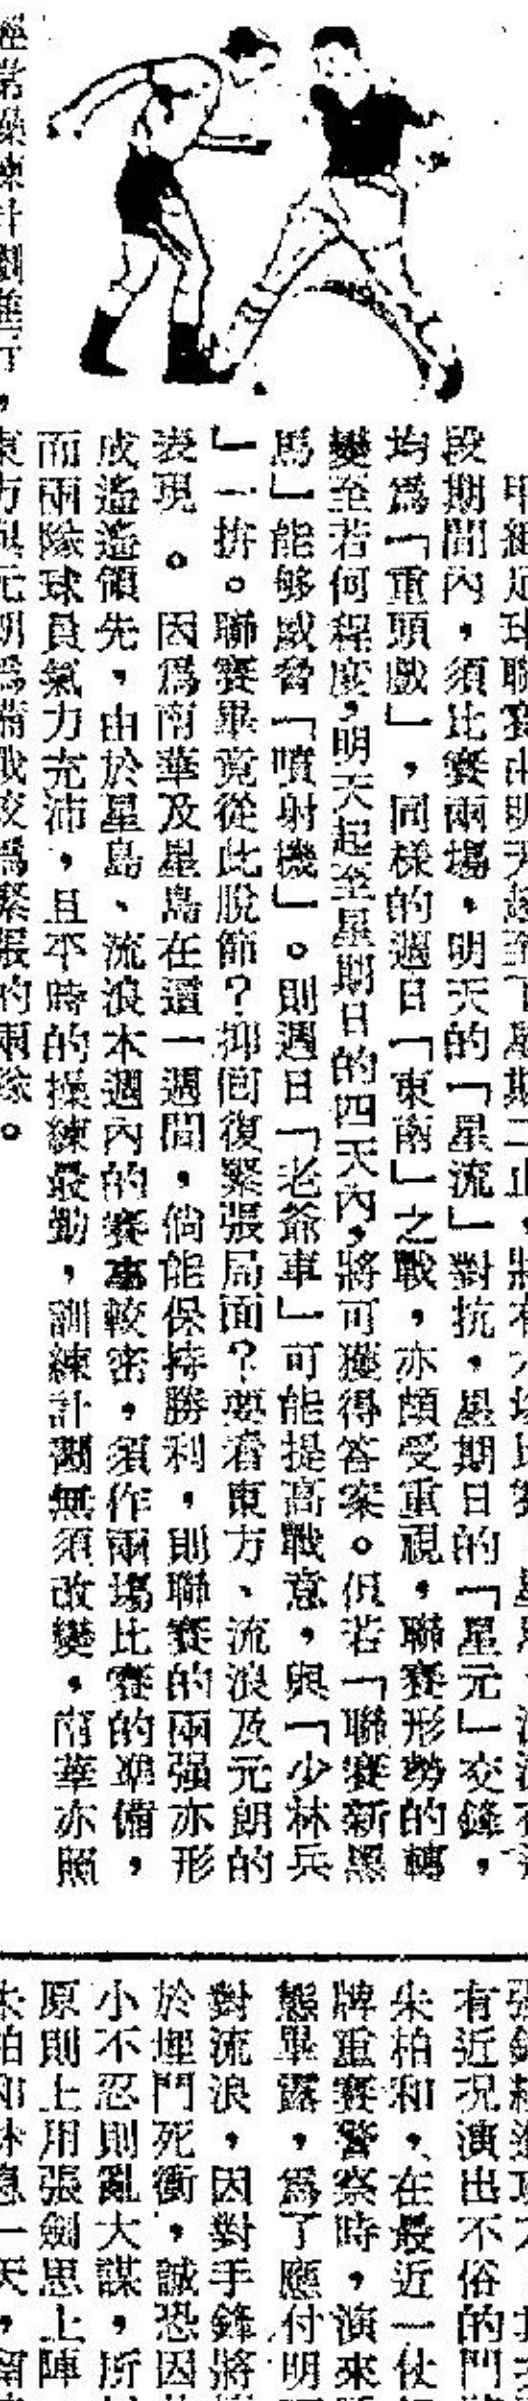 甲組足球聯賽由明天起至下星期二止，將有六場比賽
段期間內，須比賽兩場，明天的「星流」對抗，星期日的「星元」交鋒，
均爲「重頭戲」，同樣的週日「東南」之戰，亦頗受重視，聯賽形勢的轉
變至若何程度，明天起至星期日的四天內，將可獲得答案。但若「聯賽新黑
馬」能够威脅「噴射機」。則週日「老爺車」可能提高戰意，與「少林兵
」一拚。聯賽畢竟從此脫節？抑囘復緊張局面？要看東方、流浪及元朗的
表現。因爲南華及星島在這一週間，倘能保持勝利，則聯賽的兩强亦形
成遙遙領先，由於星島、流浪本週內的賽事較密，須作兩場比賽的準備，
而兩隊球員氣力充沛，且平時的操練最勤，訓練計劃無須改變，南華亦照
經常操練計劃進行，東方與元朗爲備戰較爲緊張的兩隊。
有近況演出不俗的門
朱柏和、在最近一仗
牌重賽警察時，演來
態畢露，爲了應付明
對流浪，因對手鋒將
於埋門死衝，誠恐因
小不忍則亂大謀，所
原則上用張劍思上陣
朱柏和休息一天，留